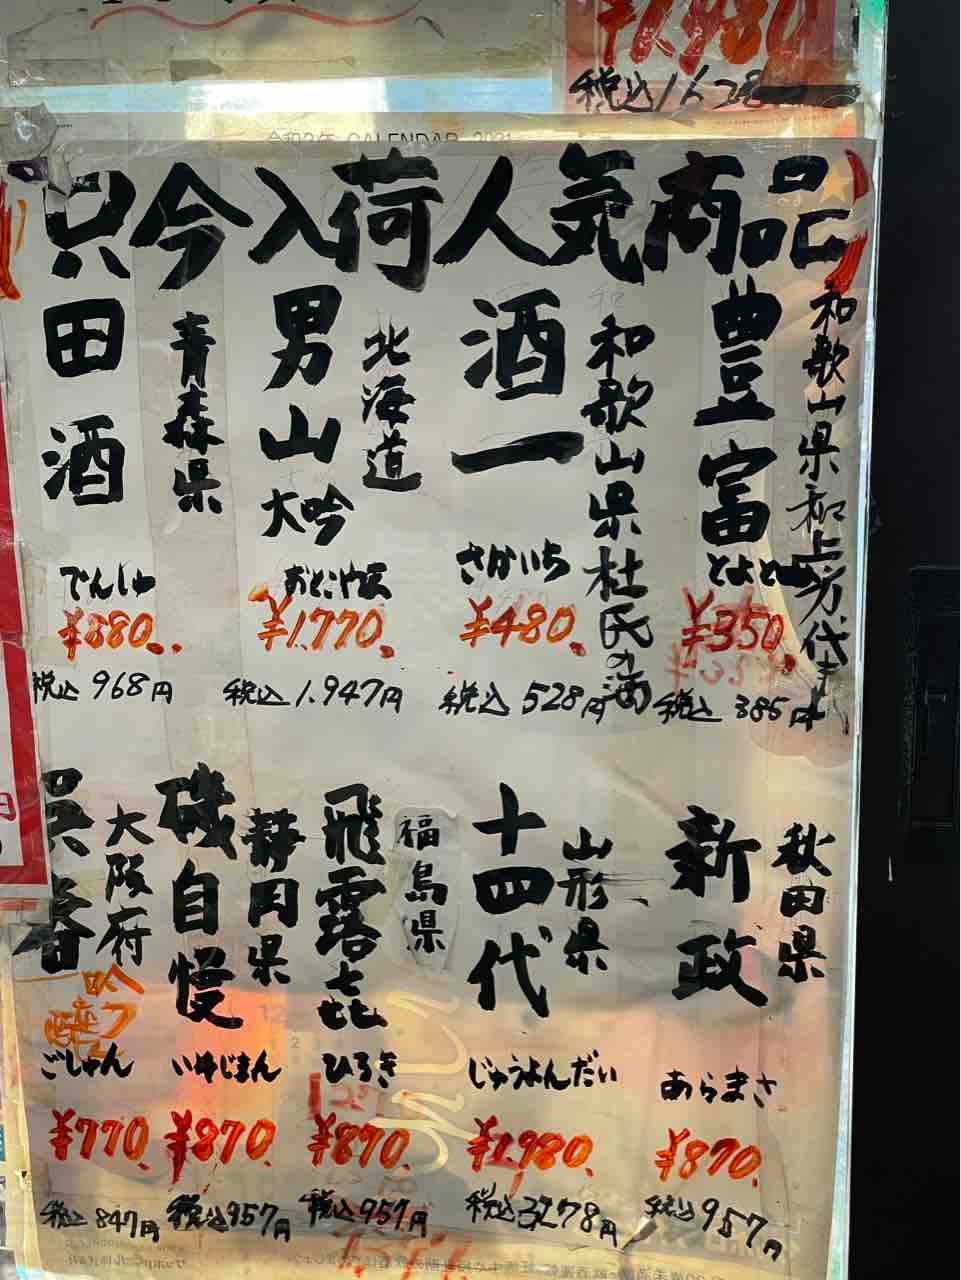 ¥1,980
税込1628
令和3年 CALENDAR 2021
只今入荷人気商品
豊富
和歌山県和上方代
とよと
¥350.
税込 385円
酒一
和歌山県杜氏の酒
さかいち
¥480.
税込 528円
男山
大吟
北海道
おとこやま
¥1.770.
税込 1.947円
田酒
青森県
でんしゅ
¥880.
税込 968円
新政
秋田県
あらまさ
¥870.
税込957円
十四代
山形県
じゅうよんだい
¥1,980.
税込3278円
飛露喜
福島県
ひろき
¥870.
税込957円
磯自慢
静岡県
いそじまん
¥870.
税込957円
呉春
大阪府
ごしゅん
¥770.
税込847円